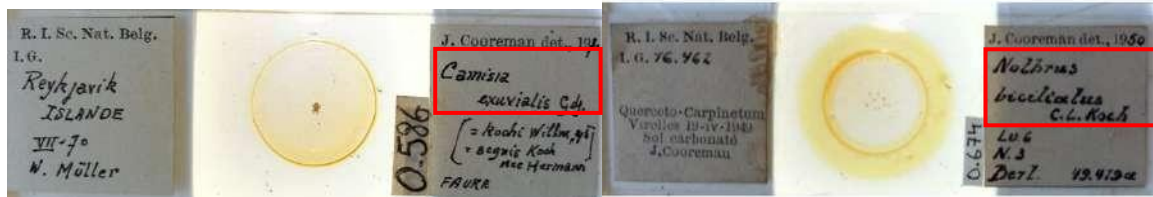 R. I. Sc. Nat. Belg.
I.G.
Reykjavik
ISLANDE
VII-70
W. Müller
0.586
J. Cooreman det., 19
Camisia
exuvialis
= Kochi Willm.
= segnis Koch
nec Hermann
FAURE
R. I. Sc. Nat. Belg.
I. G. 16.462
Querceto-Carpinetum
Virelles 19-iv-1949
Sol carbonaté
J.Cooreman
0.674
J. Cooreman det., 1950
Nothrus
biciliatus
C.L. Koch
Lu6
N.3
Berl. 49.419a